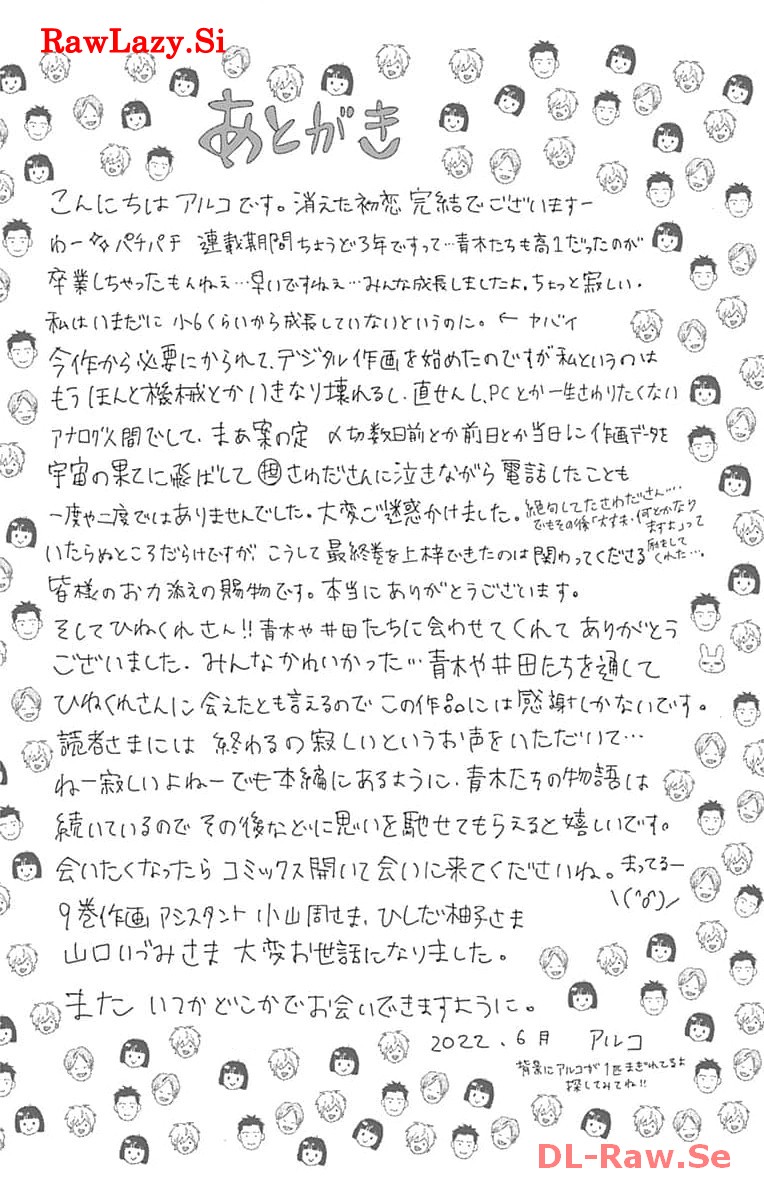 RawLazy.Si
あとがき
こんにちは アルコです。消えた初恋 完結でございますー
わー パチパチ 連載期間ちょうど3年ですって…青木たちも高1だったのが
卒業しちゃったもんねぇ…早いですねぇ…みんな成長しましたよ。ちょっと寂しい。
私はいまだに 小6くらいから成長していないというのに。← ヤバイ
今作から必要にかられて、デジタル作画を始めたのですが私というのは
もうほんと機械とかいきなり壊れるし、直せんし、PCとか一生さわりたくない
アナログ人間でして、まあ案の定 〆切数日前とか前日とか当日に作画データを
宇宙の果てに飛ばして 担さわださんに泣きながら電話したことも
一度や二度ではありませんでした。大変ご迷惑かけました。
絶句してたさわださん…
でもその後「大丈夫、何とかなりますよ」って
励ましてくれた…。
いたらぬところだらけですが、こうして最終巻を上梓できたのは関わってくださる
皆様のお力添えの賜物です。本当にありがとうございます。
そしてひねくれさん!!青木や井田たちに会わせてくれてありがとう
ございました。みんなかわいかった…青木や井田たちを通して
ひねくれさんに会えたとも言えるのでこの作品には感謝しかないです。
読者さまには 終わるの寂しいというお声をいただいて…
ねー寂しいよねーでも本編にあるように、青木たちの物語は
続いているのでその後などに思いを馳せてもらえると嬉しいです。
会いたくなったらコミックス開いて会いに来てくださいね。まってるー
\(^o^)/
9巻作画アシスタント 小山周さま、ひしだ柚子さま
山口いづみさま 大変お世話になりました。
また いつかどこかでお会いできますように。
2022、6月 アルコ
背景にアルコが1匹まぎれてるよ
探してみてね!!
DL-Raw.Se